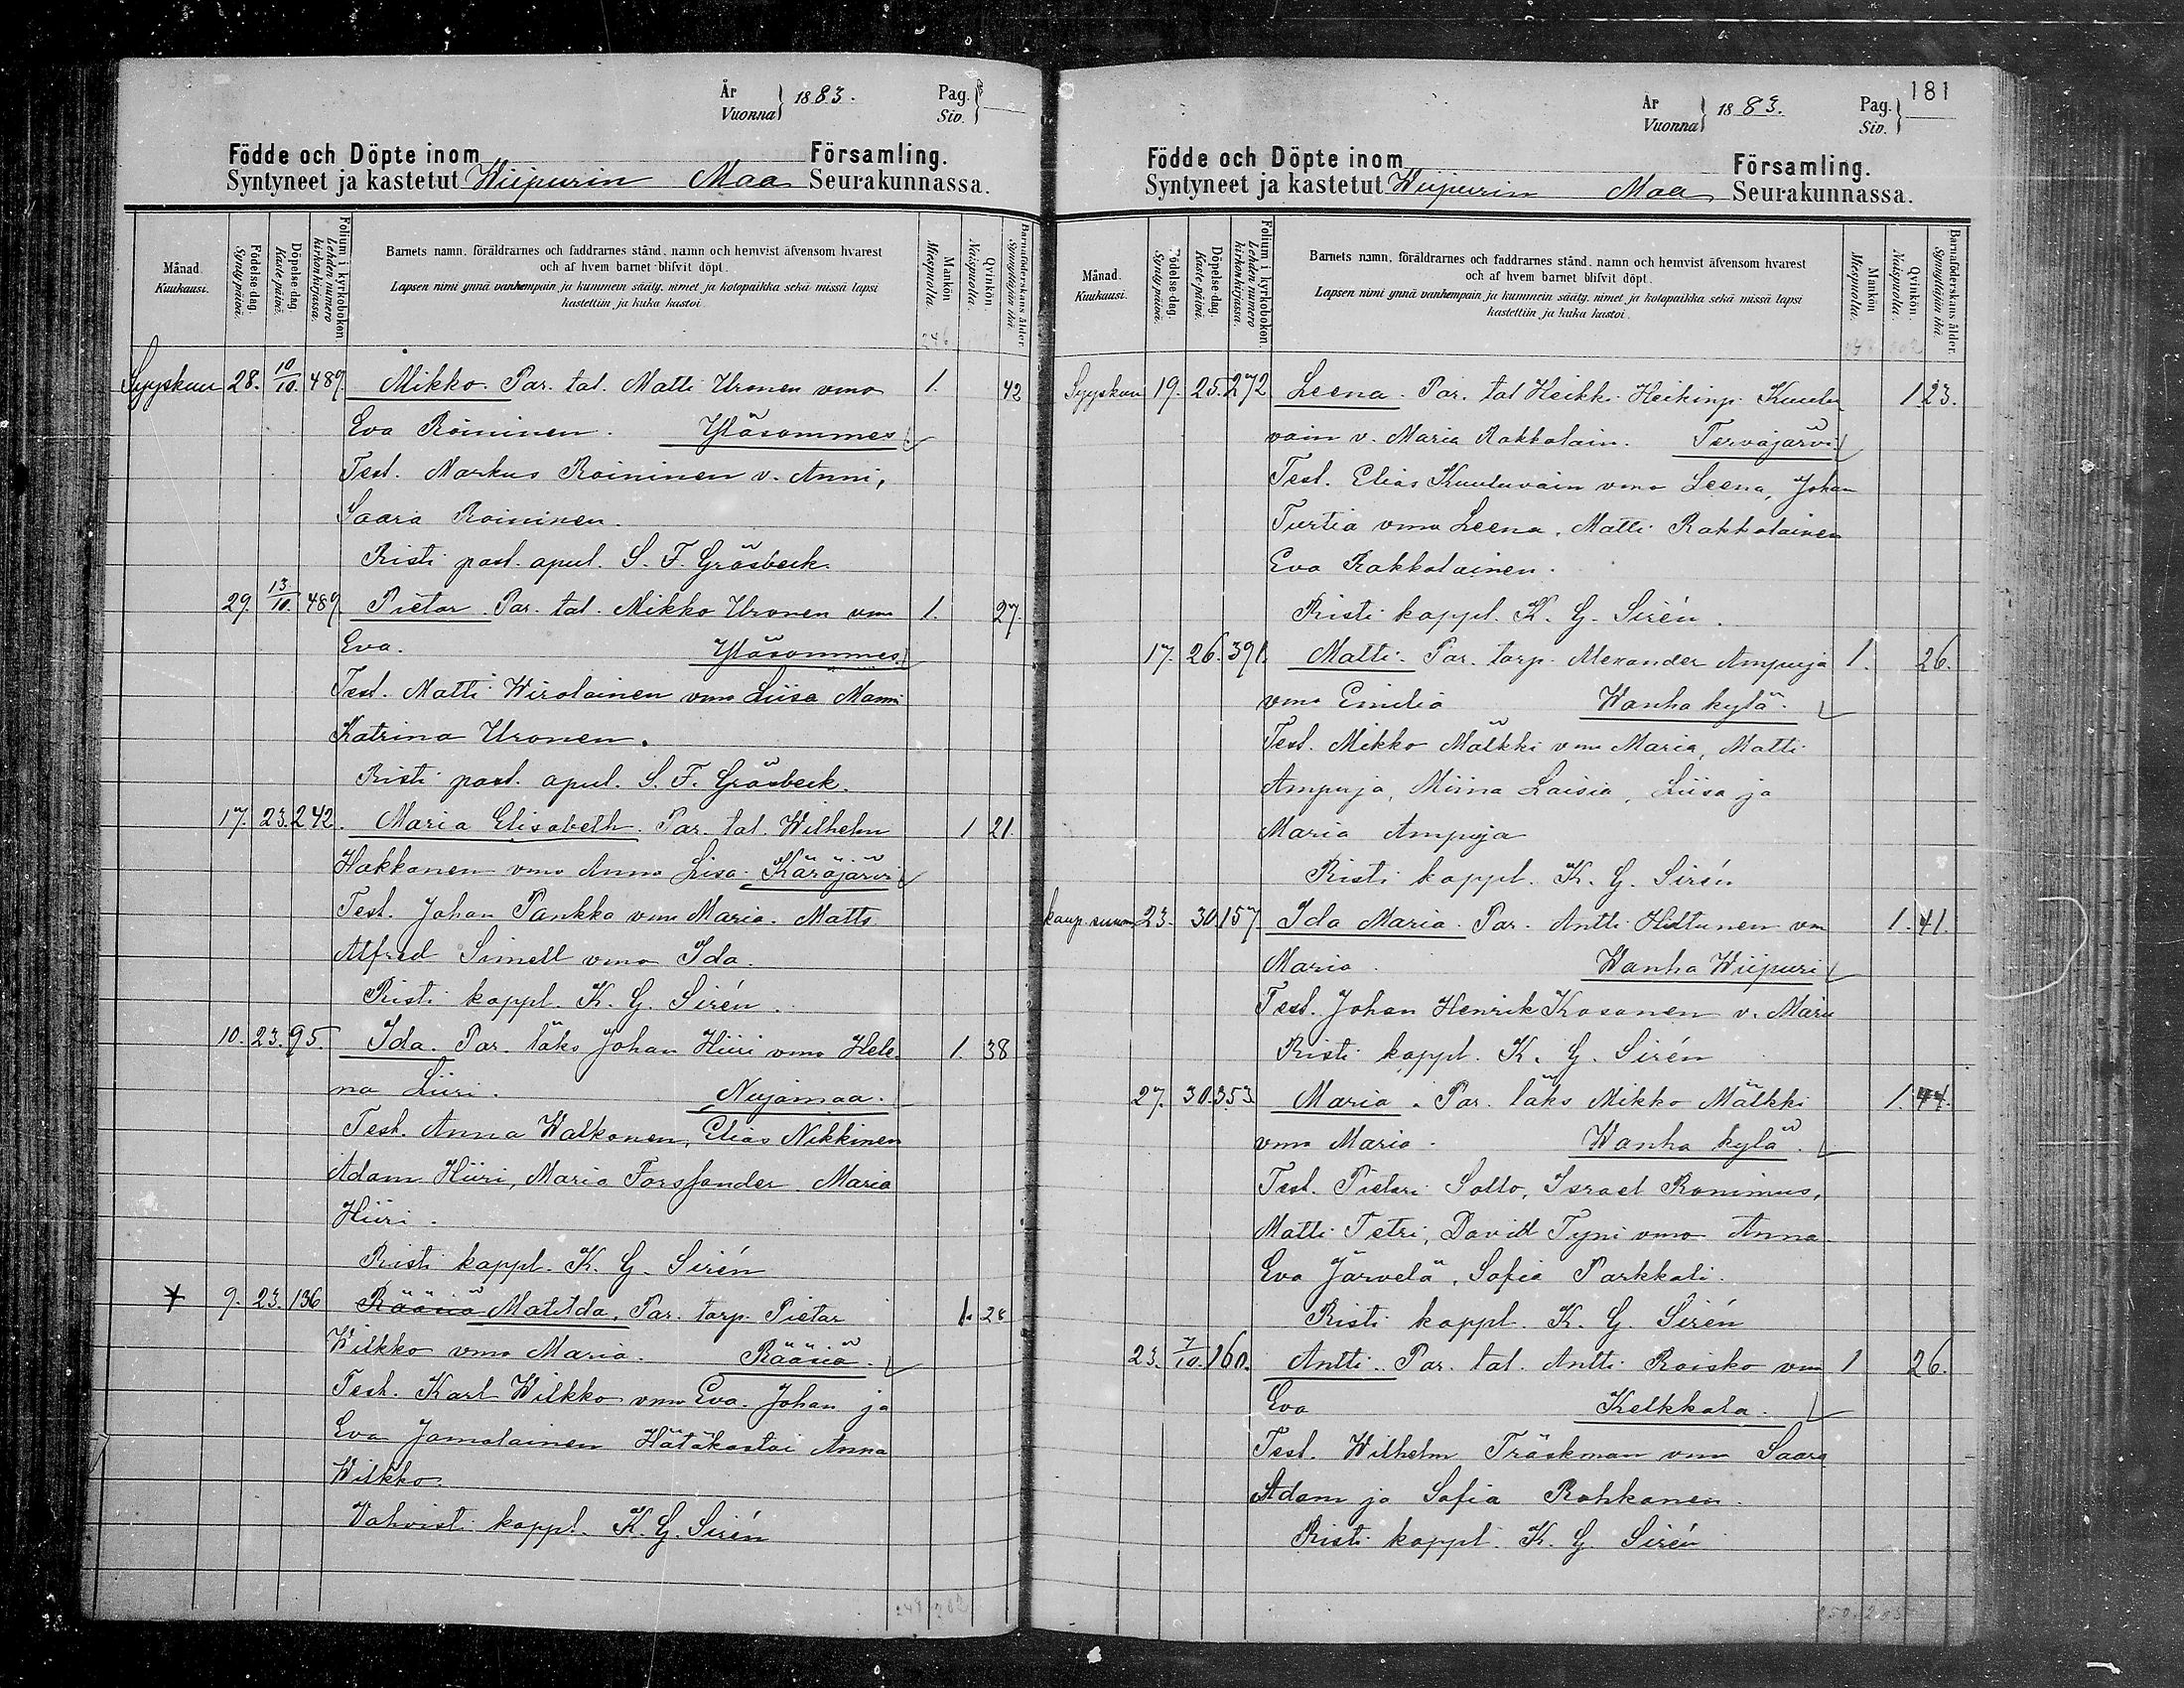 År
Vuonna } 1883.
Pag.
Siv. }
Födde och Döpte inom Församling.
Syntyneet ja kastetut Wiipurin Maa Seurakunnassa.
Månad.
Kuukausi.
Födelse-dag.
Syntypäivä.
Döpelse-dag.
Kastepäivä.
Folium i kyrkoboken
Lehden numero kirkonkirjassa.
Barnets namn, föräldrarnes och faddrarnes stånd, namn och hemvist äfvensom hvarest
och af hvem barnet blifvit döpt.
Lapsen nimi ynnä vanhempain ja kummein sääty, nimet ja kotopaikka sekä missä lapsi
kastettiin ja kuka kastoi.
Mankön
Miespuolia.
Qvinkön.
Naispuolia.
Barnaföderskans ålder.
Synnyttäjän ikä.
246
Syyskuu 28. 10/10. 489. Mikko. Par. tal. Matti Uronen vmo 1. 42
Eva Roininen. Yläsommes
Test. Markus Roininen v. Anni,
Saara Roininen.
Risti past. apul. S. F. Gräsbeck.
29. 13/10. 489. Pietar. Par. tal. Mikko Uronen vmo 1. 27.
Eva. Yläsommes.
Test. Matti Wirolainen vmo Liisa Manni
Katrina Uronen.
Risti past. apul. S. F. Gräsbeck.
17. 23. 242. Maria Elisabeth. Par. tal. Wilhelm 1 21.
Hakkanen vmo Anna Lisa. Käräjärvi
Test. Johan Pankko vmo Maria. Matts
Alfred Simell vmo Ida.
Risti kappl. K. G. Sirén.
10. 23. 95. Ida. Par. läks Johan Hiiri vmo Hele- 1. 38
na Liiri. Nuijamaa.
Test. Anna Walkonen, Elias Nikkinen
Adam Hiiri, Maria Forssander. Maria
Hiiri.
Risti kappl. K. G. Sirén
9. 23. 136 Rääriä Matilda. Par. torp. Pietar 1. 28
Wilkko vmo Maria. Rääriä.
Test. Karl Wilkko vmo Eva. Johan ja
Eva Jamalainen Hätäkastoi Anna
Wilkko.
Vahvisti kappl. K. G. Sirén
248 202
181
År
Vuonna } 1883.
Pag.
Siv. }
Födde och Döpte inom Församling.
Syntyneet ja kastetut Wiipurin Maa Seurakunnassa.
Månad.
Kuukausi.
Födelse-dag.
Syntypäivä.
Döpelse-dag.
Kastepäivä.
Folium i kyrkoboken.
Lehden numero kirkonkirjassa.
Barnets namn, föräldrarnes och faddrarnes stånd, namn och hemvist äfvensom hvarest
och af hvem barnet blifvit döpt.
Lapsen nimi ynnä vanhempain ja kummein sääty, nimet ja kotopaikka sekä missä lapsi
kastettiin ja kuka kastoi.
Mankön
Miespuolia.
Qvinkön.
Naispuolia.
Barnaföderskans ålder.
Synnyttäjän ikä.
248 202
Syyskuu 19. 25. 272 Leena. Par. tal Heikki Heikinp. Kuulu- 1 23.
vain v. Maria Rakkolain. Tervajärvi
Test. Elias Kuuluvain vmo Leena, Johan
Turtia vmo Leena. Matti Rakkolainen
Eva Rakkolainen.
Risti kappl. K. G. Sirén.
17. 26. 391. Matti. Par. torp. Alexander Ampuja 1. 26.
vmo Emilia Wanha kylä.
Test. Mikko Mälkki vmo Maria, Matti
Ampuja, Miina Laisia, Liisa ja
Maria Ampuja
Risti kappl. K. G. Sirén
23. 30. 157 Ida Maria. Par. Antti Hiltunen vm 1. 41.
Maria. Wanha Wiipuri
Test. Johan Henrik Kosonen v. Maria
Risti kappl. K. G. Sirén
27. 30. 353. Maria. Par. läks Mikko Mälkki 1. 44.
vmo Maria. Wanha kylä.
Test. Pietari Sotto, Israel Ronimus,
Matti Petri, David Tyni vmo Anna
Eva Järvelä, Sofia Parkkali.
Risti kappl. K. G. Sirén
23. 7/10. 160. Antti. Par. tal. Antti Roisko vmo 1 26.
Eva Kelkkala.
Test. Wilhelm Träskman vmo Saara
Adam ja Sofia Rohkanen.
Risti kappl. K. G. Sirén
250. 205